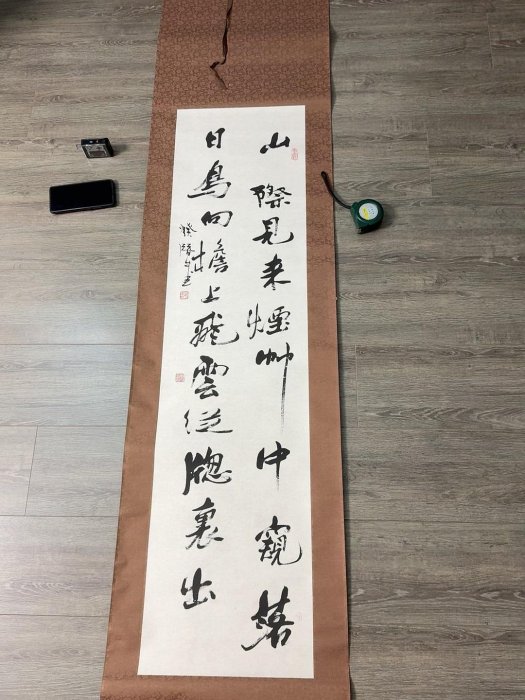 山際見来煙竹中窺落
日鳥向檐上飛雲從牕裏出